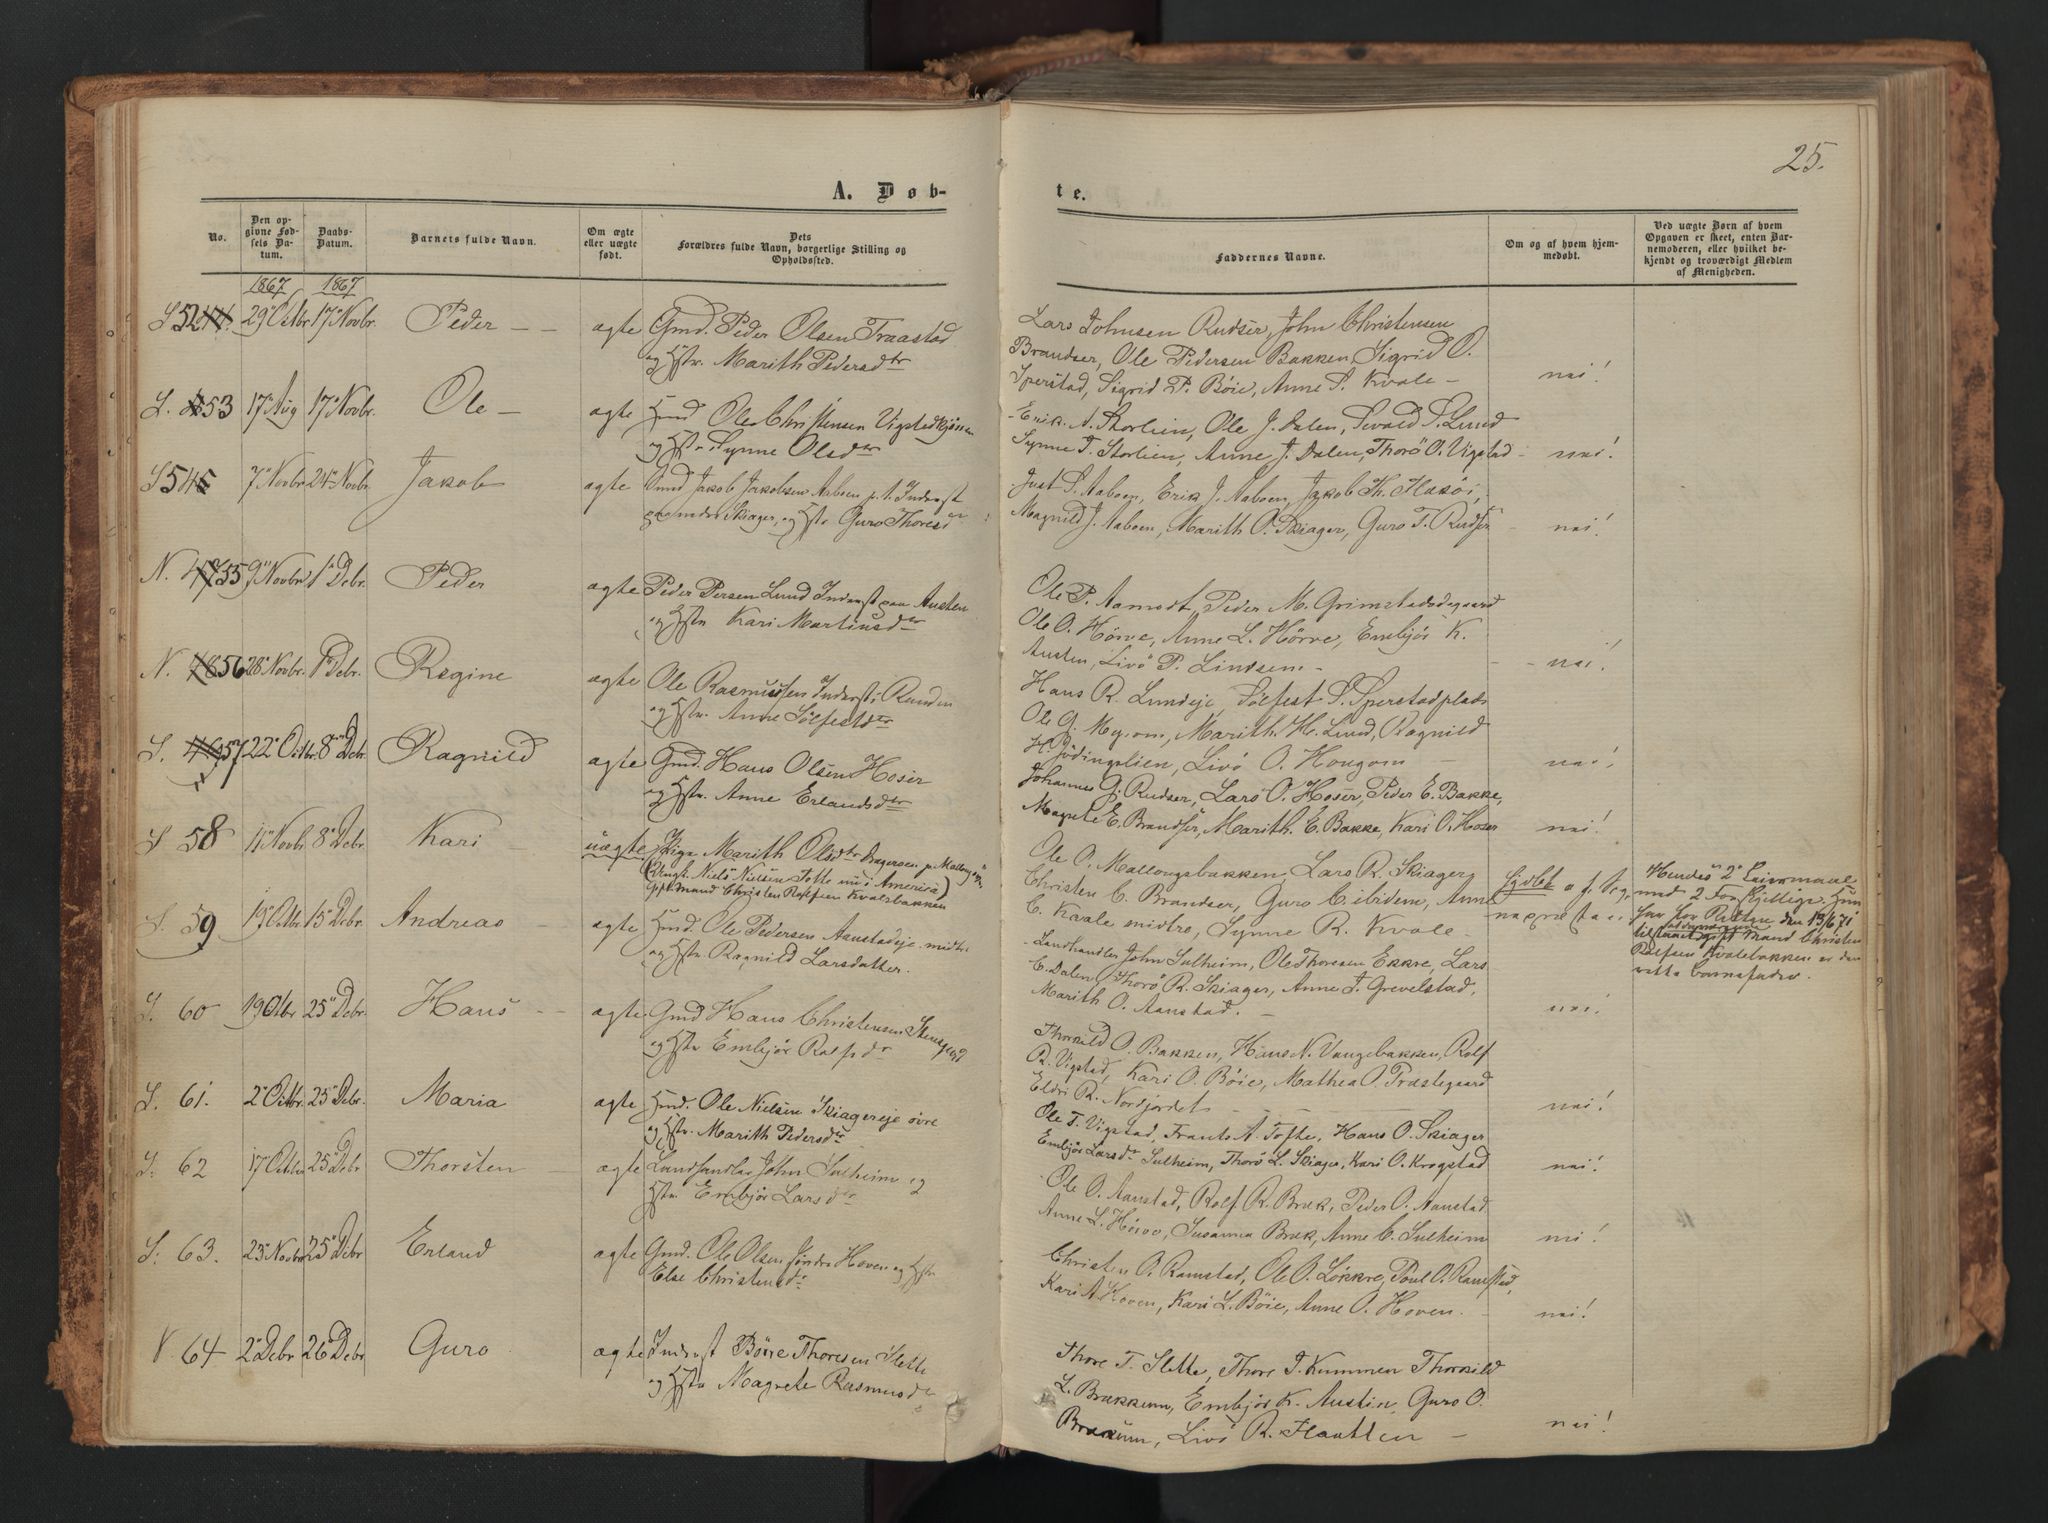 25.
A. Døb-
te.
No.
Den op-
givne Fød-
sels Da-
tum.
Daabs-
Datum.
Barnets fulde Navn.
Om ægte
eller uægte
født.
Dets
Forældres fulde Navn, borgerlige Stilling og
Opholdssted.
Faddernes Navne.
Om og af hvem hjem-
medøbt.
Ved uægte Børn af hvem
Opgaven er skeet, enten Bar-
nemoderen, eller hvilket be-
kjendt og troværdigt Medlem
af Menigheden.
1867 1867
S 52 29 Octbr 17 Novbr. Peder - - ægte Gmd. Peder Olsen Fraastad
og Hstr. Marith Pedersdtr
Lars Johnsen Rudser, John Christensen
Brandser, Ole Pedersen Bakken, Sigrid O.
Sperstad, Sigrid P. Böie, Anne S. Kvale - nei!
S. 53 17 Aug 17 Novbr. Ole - ægte Hmd Ole Christensen
og Hstr Synne Olsdtr
Erik A. Storlien, Ole J. Dalen, Sevald S. Lund
Synne T. Storlien, Anne J. Dalen, Thorö O. Vigstad - nei!
S 54 7 Novbr 24 Novbr. Jakob ægte Jakob Jakobsen Aaboen p. t. Inderst
paa Skiager, og Hstr Guro Thoresdr
Just S. Aaboen, Erik J. Aaboen, Jakob Th.
Magnild J. Aaboen, Marith O. Skiager, Guro T. Rudser - nei!
N. 55 9 Novbr 1 Debr. Peder ægte Peder Persen Lund Inderst paa Austen
og Hstr Kari Martiusdr
Ole P. Aamodt, Peder M. Grimstadsdegaard
Ole O. Höive, Anne L. Hörve, Embjör K.
Austen, Livö P. Lindsem - - - nei!
N. 56 28 Novbr. 1 Debr. Regine ægte Ole Rasmussen Inderst i Randen
og Hstr. Anne Sölfestdtr
Hans R. Lundeje, Sölfest S. Sperstadplads
Ole G. Myrom, Marith H. Lund, Ragnild
H. Livö O. Hougom - nei!
S. 57 22 Octbr. 8 Debr. Ragnild ægte Gmd. Hans Olsen Hoser
og Hstr. Anne Erlandsdtr
Johannes G. Rudser, Lars O. Hoser, Peder E. Bakke,
Magrete E. Brandser, Marith. E. Bakke, Kari O. Hoser nei!
S 58 11 Novbr 8 Debr. Kari - uægte Pige Marith Olsdtr
(Ungk. Niels Nielsen Tofte nu i America)
Gift mand Christen Rolfsen Kvalebakken
Ole O. Mallongsbakken, Lars R. Skiager,
Christen C. Brandser, Guro C. ibidem, Anne
C. Kaale midtre, Synne R. Kvale -
Hendes 2 Leiermaal
med 2 Forskjellige. Hun
har for Retten den 13/6 71
tilstaaet gift Mand Christen
Rolfsen Kvalebakken er den
rette barnefader.
S. 59 19 Octbr. 15 Debr. Andreas - ægte Hmd. Ole Pedersen Aanstadeje midtre
og Hstr Ragnild Larsdatter.
Landhandler John Sulheim, Ole Thoresen Ekkre, Lars
E. Dalen, Thorö R. Skiager, Anne T. Grevelstad,
Marith O. Aanstad. - nei!
S. 60 19 Otbr 25 Debr. Hans - - ægte Gmd Hans Christensen Stensgard
og Hstr Embjör Rolfsdr
Thorkild O. Bakken, Hans N. Vangebakken, Rolf
R. Vigstad, Kari O. Böie, Mathea O. Prastegaard
Eldri R. Nordjordet - - - - nei!
S. 61. 2 Octbr. 25 Debr. Maria ægte Hmd. Ole Nielsen Skiagereje övre
og Hstr. Marith Pedersdtr
Ole T. Vigstad, Frants A. Tofte, Hans O. Skiager
Embjör Larsdr Sulheim, Thorö L. Skiager, Kari O. Krogstad nei!
S. 62 17 Octbr 25 Debr Thorsten - ægte Landhandler John Sulheim og
Hstr. Embjör Larsdtr
Ole O. Aanstad, Rolf R. Bræk, Peder O. Aanstad
Anne L. Höive, Susanna Bræk, Anne C. Sulheim nei!
S. 63. 23 Novbr 25 Debr Erland ægte Gmd. Ole Olsen söndre Hoven og Hstr
Else Christensdr
Christen O. Ramstad, Ole O. Lökkre, Poul O. Ramstad,
Kari A. Hoven, Kari L. Böie, Anne O. Hoven. - nei!
N. 64 2 Debr 26 Debr Guro ægte Inderst Böie Thoresen Slette
og Hstr Magrete Rasmusdr
Thore T. Slette, Thore J. Kummen Thorkild
L. Brækkum, Embjör K. Austin, Guro O.
Livö R. - nei!